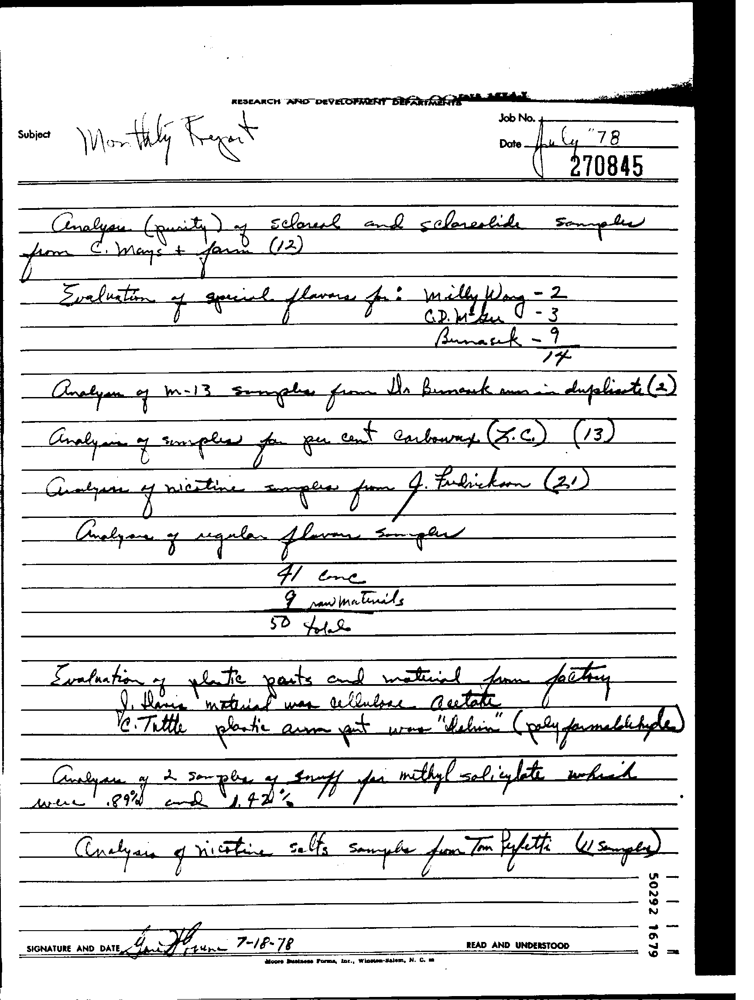 RESEARCH AND DEVELOPMENT DEPARTMENTS
Subject Monthly Report
Job No.
Date July "78
270845
Analyses (purity) of sclareol and sclareolide samples
from C. Mays + farm (12)
Evaluation of special flavors for: Milly Wong - 2
C.D. - 3
Bumasek - 9
14
Analyses of M-13 samples from Dr run in duplicate (2)
Analysis of samples for per cent carbowax (13)
Analyses of nicotine samples from J. Fredrickson (21)
Analyses of regular flavor samples
41 conc
9 raw materials
50 total
Evaluation of plastic parts and material from factory
J. material was cellulose acetate
C. Tuttle plastic arm part was "Delrin" (polyformaldehyde)
Analyses of 2 samples of snuff for methyl salicylate which
were .89% and 1.42%
Analysis of nicotine salts samples from Tom Perfetti (11 samples)
50292 1679
SIGNATURE AND DATE 7-18-78
READ AND UNDERSTOOD
Moore Business Forms, Inc., Winston-Salem, N. C.